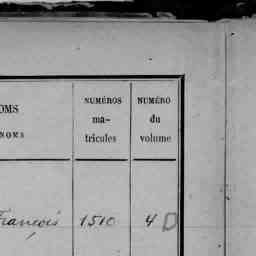 OMS
NOMS
NUMÉROS
ma-
tricules
NUMÉRO
du
volume
François 1510 4 D